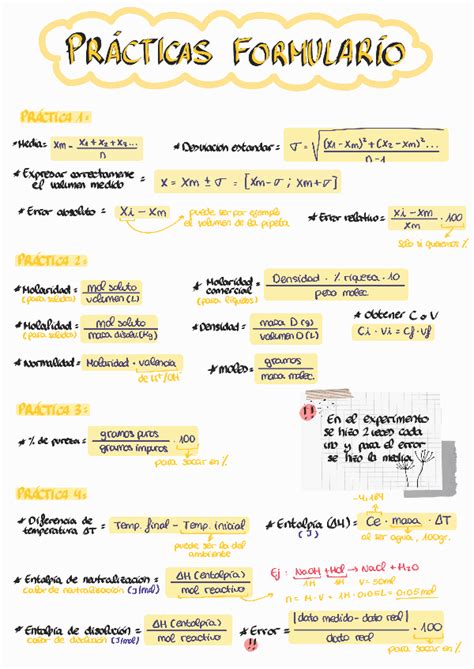 PRÁCTICAS FORMULARIO
PRÁCTICA 1:
*Media= Xm = (X1 + X2 + X3...)/n
* Desviación estandar = σ = √((X1-Xm)² + (X2-Xm)².../n-1)
* Expresar correctamente el volumen medido = X = Xm ± σ = [Xm-σ ; Xm+σ]
* Error absoluto = Xi - Xm
puede ser por ejemplo
el volumen de la pipeta
* Error relativo = (Xi - Xm)/Xm · 100
Solo si queremos %
PRÁCTICA 2:
*Molaridad = mol soluto/volumen (L)
(para solidos)
* Molaridad comercial = Densidad · % riqueza · 10/peso molec.
(para líquidos)
*Molalidad = mol soluto/masa disolu.(Kg)
(para solidos)
*Densidad = masa D (g)/volumen D (L)
* obtener C o V
Ci · Vi = Cf · Vf
*Normalidad = Molaridad · valencia
de H+/OH
*moles = gramos/masa molec.
PRÁCTICA 3:
* % de pureza = gramos puros/gramos impuros · 100
para sacar en %
!!
En el experimento
se hizo 2 veces cada
uno y para el error
se hizo la media.
PRÁCTICA 4:
* Diferencia de temperatura ΔT = Temp. final - Temp. inicial
puede ser la del
ambiente
* Entalpía (ΔH) = Ce · masa · ΔT
(J)
al ser agua, 100gr.
* Entalpía de neutralización = ΔH (entalpía)/mol reactivo
calor de neutralización (J/mol)
Ej: NaOH + HCl → NaCl + H2O
1M 1M V=50ml
n = M · V = 1M · 0.05L = 0.05mol
* Entalpía de disolución = ΔH (entalpía)/mol reactivo
calor de disolución (J/mol)
* Error = |dato medido - dato real|/dato real · 100
!!
para sacar en %